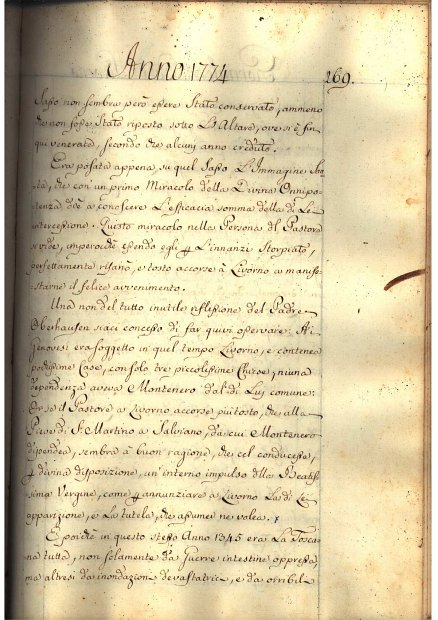 Anno 1774
269.
Sasso non sembra però essere Stato conservato, ammeno
che non fosse Stato riposto sotto L'Altare, ove si è fin
qui venerata, secondo che alcuni anno creduto.
Era posata appena su quel Sasso L'Immagine
che con un primo Miracolo della Divina Onnipo-
tenza diè a conoscere L'efficacia somma della di Lei
intercessione. Questo miracolo nella Persona del Pastore
si vide, imperocchè essendo egli p L'innanzi Storpiato,
perfettamente risanò, e tosto accorse à Livorno a manife-
starne il felice avvenimento.
Una non del tutto inutile riflessione del Padre
Oberhausen siaci concesso di far quivi osservare. Ai
Genovesi era soggetto in quel tempo Livorno, e contenea
pochissime Case, con solo tre piccolissime Chiese; niuna
dependenza aveva Montenero dal di Lui comune.
Or se il Pastore a Livorno accorse più tosto, che alla
Pieve di S. Martino a Salviano, da cui Montenero
dipendea, sembra à buon ragione, che cel conducesse,
p divina disposizione, un'interno impulso dlla Beatis-
sima Vergine, come p annunziare à Livorno La di Lei
apparizione, e La tutela, che assumer ne volea.
E poichè in questo stesso Anno 1345 era La Tosca-
na tutta, non solamente da Guerre intestine oppressa,
ma altresì da inondazion devastatrice, e da orribil